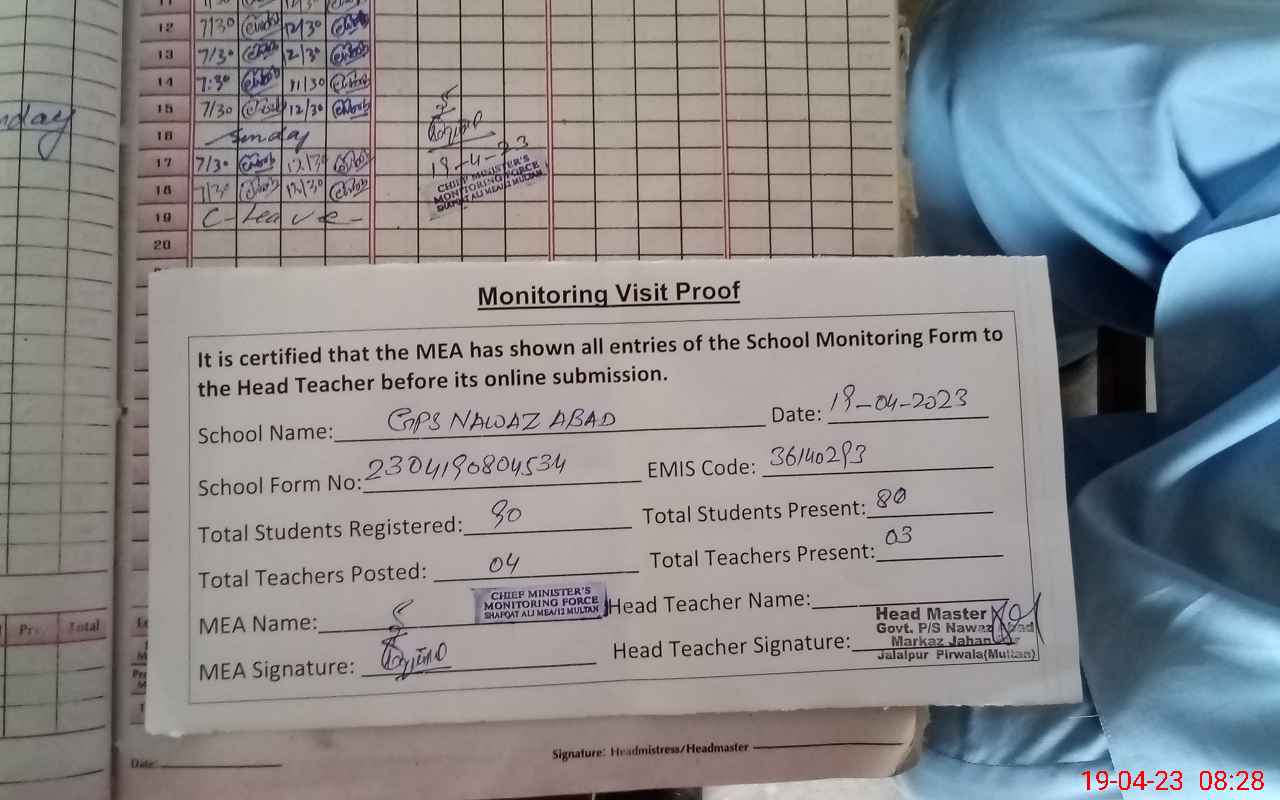 12 7/30 12/30
13 7/30 12/30
14 7:30 11/30
15 7/30 12/30
16 Sunday
17 7/30 12/30
18 7/30 12/30
19 C-Leave-
20
19-4-23
CHIEF MINISTER'S
MONITORING FORCE
SHAFQAT ALI MEA/12 MULTAN
Monitoring Visit Proof
It is certified that the MEA has shown all entries of the School Monitoring Form to
the Head Teacher before its online submission.
School Name: GPS NAWAZ ABAD Date: 19-04-2023
School Form No: 2304190804534 EMIS Code: 36140293
Total Students Registered: 90 Total Students Present: 80
Total Teachers Posted: 04 Total Teachers Present: 03
MEA Name: CHIEF MINISTER'S
MONITORING FORCE
SHAFQAT ALI MEA/12 MULTAN
Head Teacher Name:
MEA Signature: Head Teacher Signature:
Head Master
Govt. P/S Nawaz Abad
Markaz Jahan
Jalalpur Pirwala(Multan)
Total
Date:
Signature: Headmistress/Headmaster
19-04-23 08:28